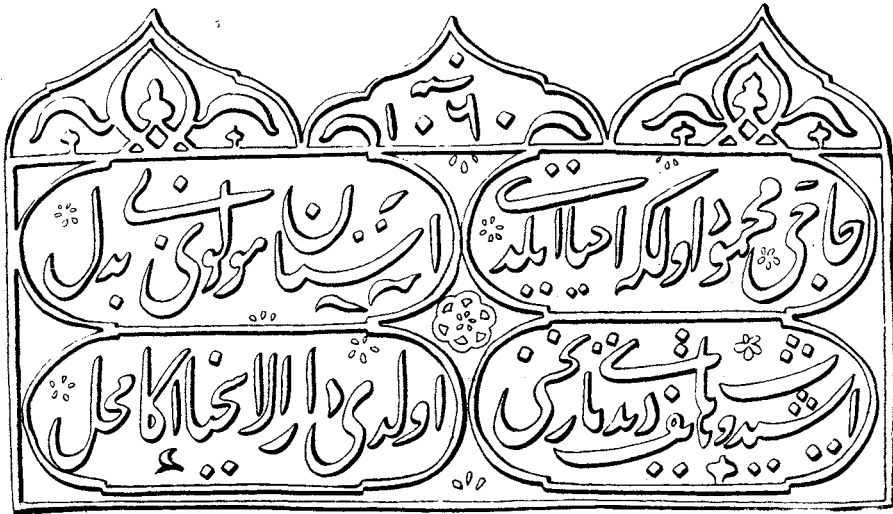 سنه ١٠٦٠
حاجی محمود اولکه احیا ایلدی
آستان مولوی بی بدل
ایشیدوب هاتف دیدی تاریخنی
اولدی دار الاسخیا اکا محل